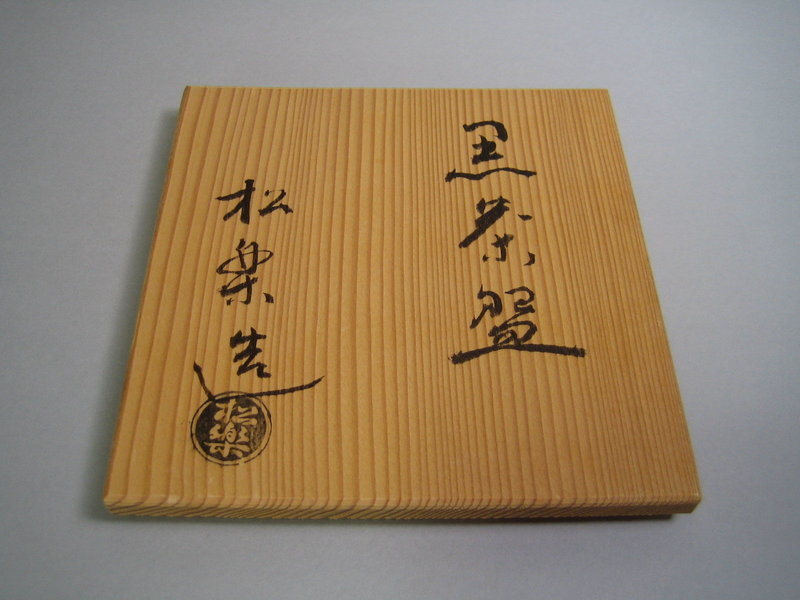 黒茶盌
松楽造
松樂